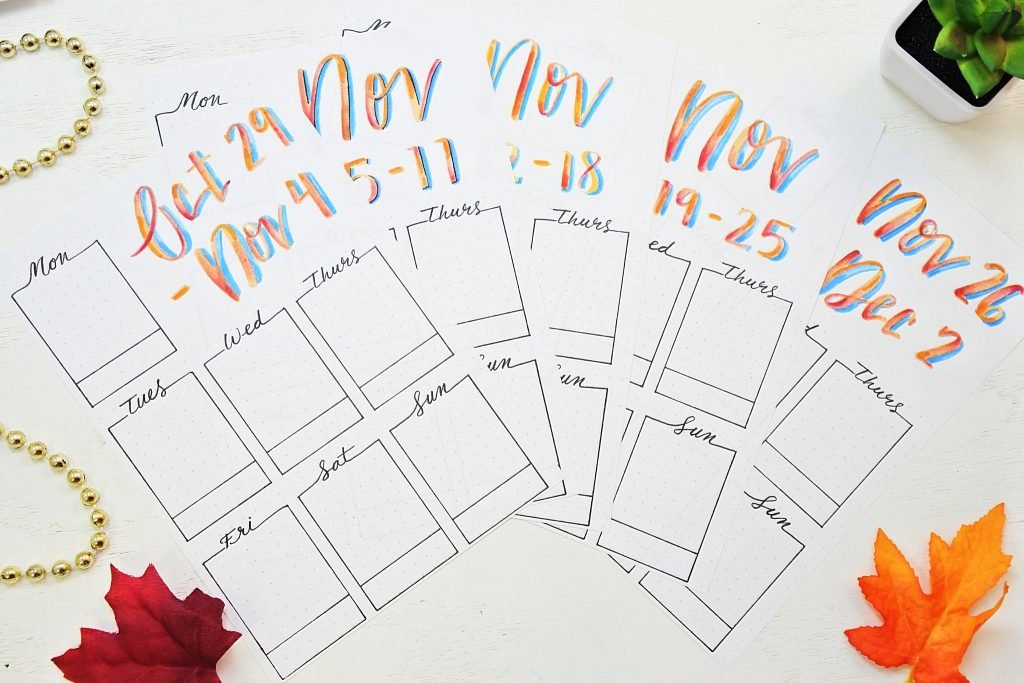 Oct 29
- Nov 4
Mon
Tues
Wed
Thurs
Fri
Sat
Sun
Mon
Nov
5-11
Thurs
un
Nov
2-18
Thurs
un
Nov
19-25
ed
Thurs
Sun
Nov 26
Dec 2
Thurs
Sun